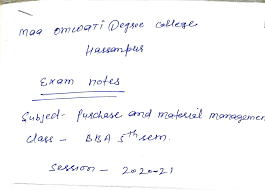 maa omwati Degree college
Hassanpur
Exam notes
Subject- Purchase and material managemen
class - BBA 5th sem.
Session - 2020-21